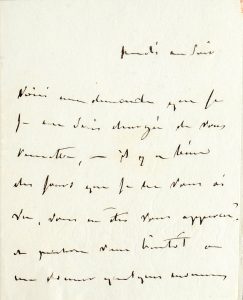 jeudi au soir
Voici une demande que je
suis chargé de vous
remettre, – il y a bien
des jours que je ne vous ai
vu, vous en êtes vous apperçu?
venir bientôt
me donner quelques